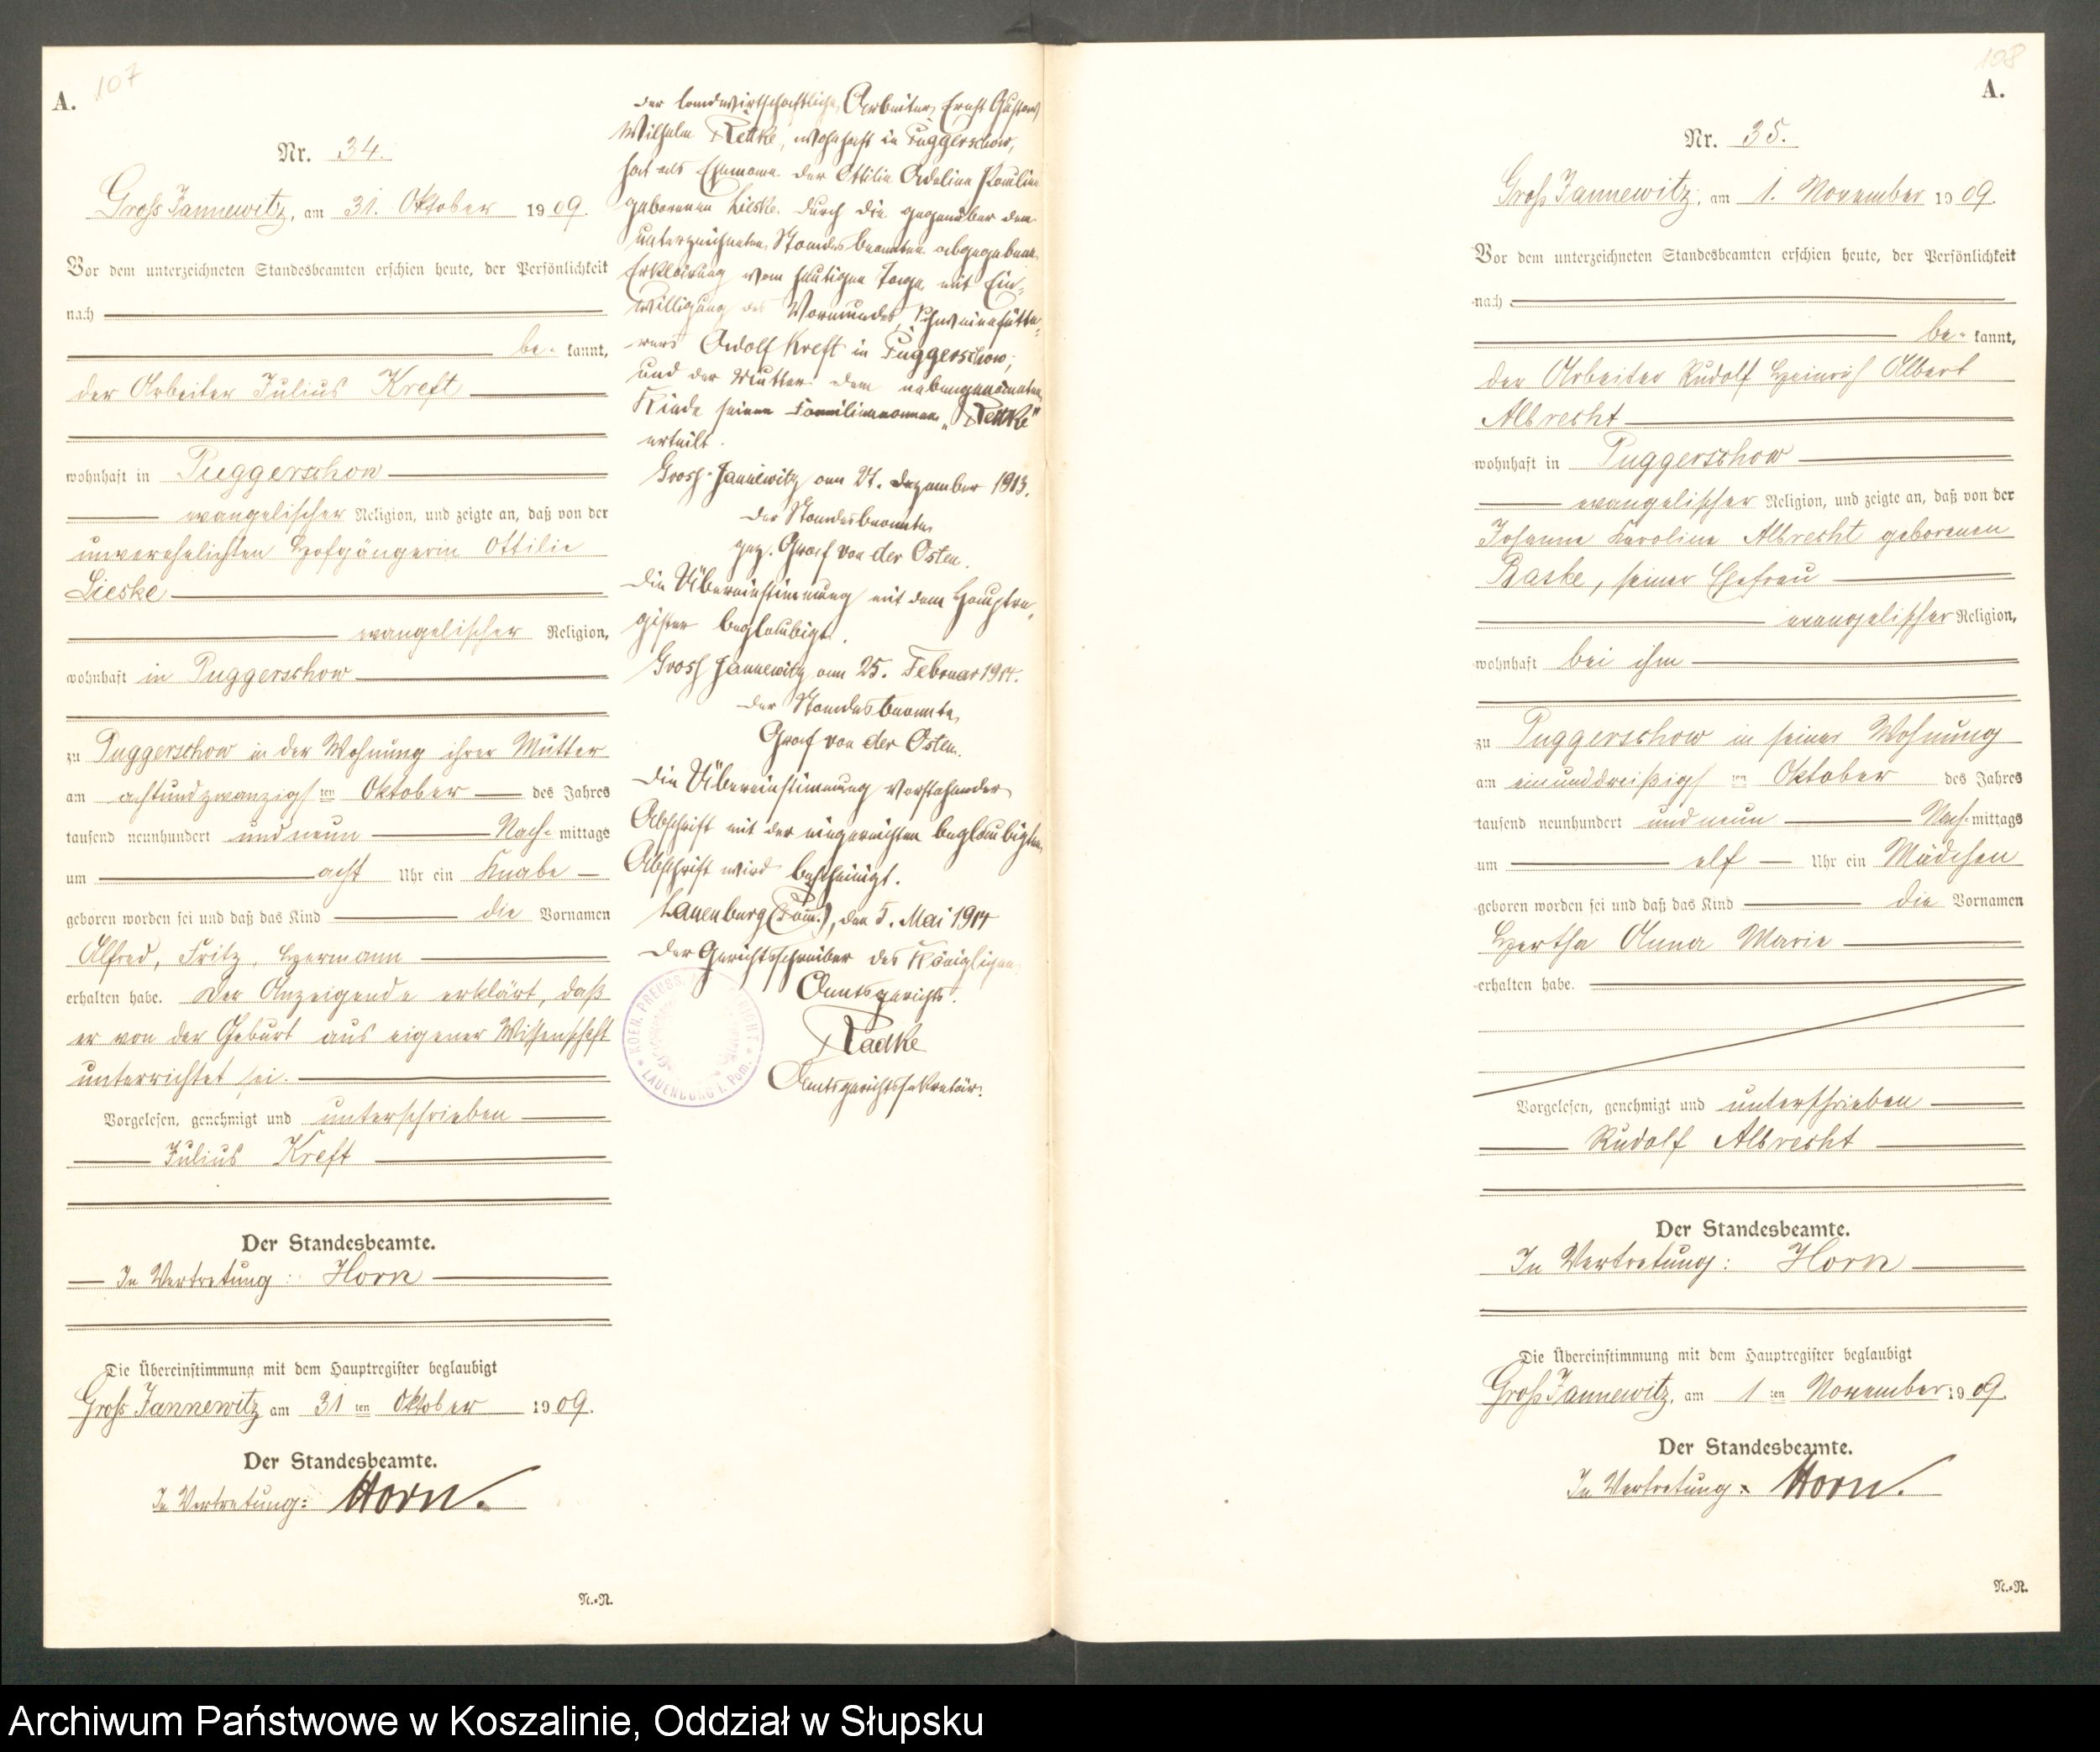 107
A.
Nr. 34.
Groß Jannewitz, am 31. Oktober 1909.
Vor dem unterzeichneten Standesbeamten erschien heute, der Persönlichkeit
nach
be- kannt,
der Arbeiter Julius Kreft
wohnhaft in Puggerschow
evangelischer Religion, und zeigte an, daß von der
unverehelichten Hofgängerin Ottilie
Lieske
evangelischer Religion,
wohnhaft in Puggerschow
zu Puggerschow in der Wohnung ihrer Mutter
am achtundzwanzigsten Oktober des Jahres
tausend neunhundert und neun Nach- mittags
um acht Uhr ein Knabe
geboren worden sei und daß das Kind die Vornamen
Alfred, Fritz, Hermann
erhalten habe. Der Anzeigende erklärt, daß
er von der Geburt aus eigener Wissenschaft
unterrichtet sei.
Vorgelesen, genehmigt und unterschrieben
Julius Kreft
Der Standesbeamte.
In Vertretung: Horn
Die Übereinstimmung mit dem Hauptregister beglaubigt
Groß Jannewitz am 31 ten Oktober 1909.
Der Standesbeamte.
In Vertretung: Horn.
N.=N.
Der landwirtschaftliche Arbeiter Ernst Gustav
Wilhelm Rettke, wohnhaft in Puggerschow,
hat als Ehemann der Ottilie Adeline Pauline
geborenen Lieske durch die gegenüber dem
unterzeichneten Standesbeamten abgegebene
Erklärung vom heutigen Tage mit Ein-
willigung des Vormundes, Schweinefütte-
rers Adolf Kreft in Puggerschow,
und der Mutter dem nebengenannten
Kinde seinen Familiennamen „Rettke"
erteilt.
Gross-Jannewitz am 27. Dezember 1913.
Der Standesbeamte
gez. Graf von der Osten.
Die Übereinstimmung mit dem Hauptre-
gister beglaubigt.
Gross Jannewitz am 25. Februar 1914.
Der Standesbeamte
Graf von der Osten.
Die Übereinstimmung vorstehender
Abschrift mit der eingereichten beglaubigten
Abschrift wird bescheinigt.
Lauenburg (Pom.), den 5. Mai 1914
Der Gerichtsschreiber des Königlichen
Amtsgerichts.
Radke
Amtsgerichtssekretär.
KOEN. PREUSS.
LAUENBURG i. Pom.
108
A.
Nr. 35.
Groß Jannewitz, am 1. November 1909.
Vor dem unterzeichneten Standesbeamten erschien heute, der Persönlichkeit
nach
be- kannt,
der Arbeiter Rudolf Heinrich Albert
Albrecht
wohnhaft in Puggerschow
evangelischer Religion, und zeigte an, daß von der
Johanne Karoline Albrecht geborenen
Raske, seiner Ehefrau
evangelischer Religion,
wohnhaft bei ihm
zu Puggerschow in seiner Wohnung
am einunddreißigsten Oktober des Jahres
tausend neunhundert und neun Nach- mittags
um elf Uhr ein Mädchen
geboren worden sei und daß das Kind die Vornamen
Hertha Anna Marie
erhalten habe.
Vorgelesen, genehmigt und unterschrieben
Rudolf Albrecht
Der Standesbeamte.
In Vertretung: Horn
Die Übereinstimmung mit dem Hauptregister beglaubigt
Groß Jannewitz, am 1 ten November 1909.
Der Standesbeamte.
In Vertretung: Horn.
N.=N.
Archiwum Państwowe w Koszalinie, Oddział w Słupsku